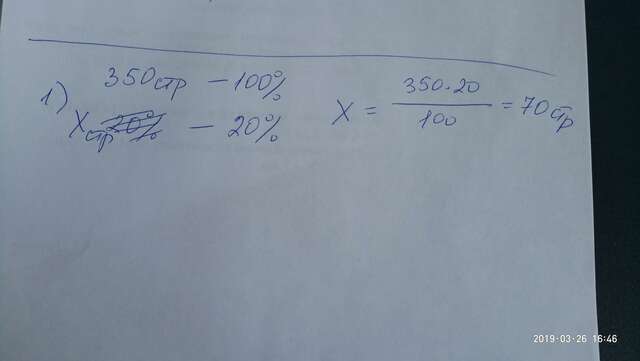 1) 350 стр — 100%
X стр — 20%
X = 350·20 / 100 = 70 стр
2019-03-26 16:46